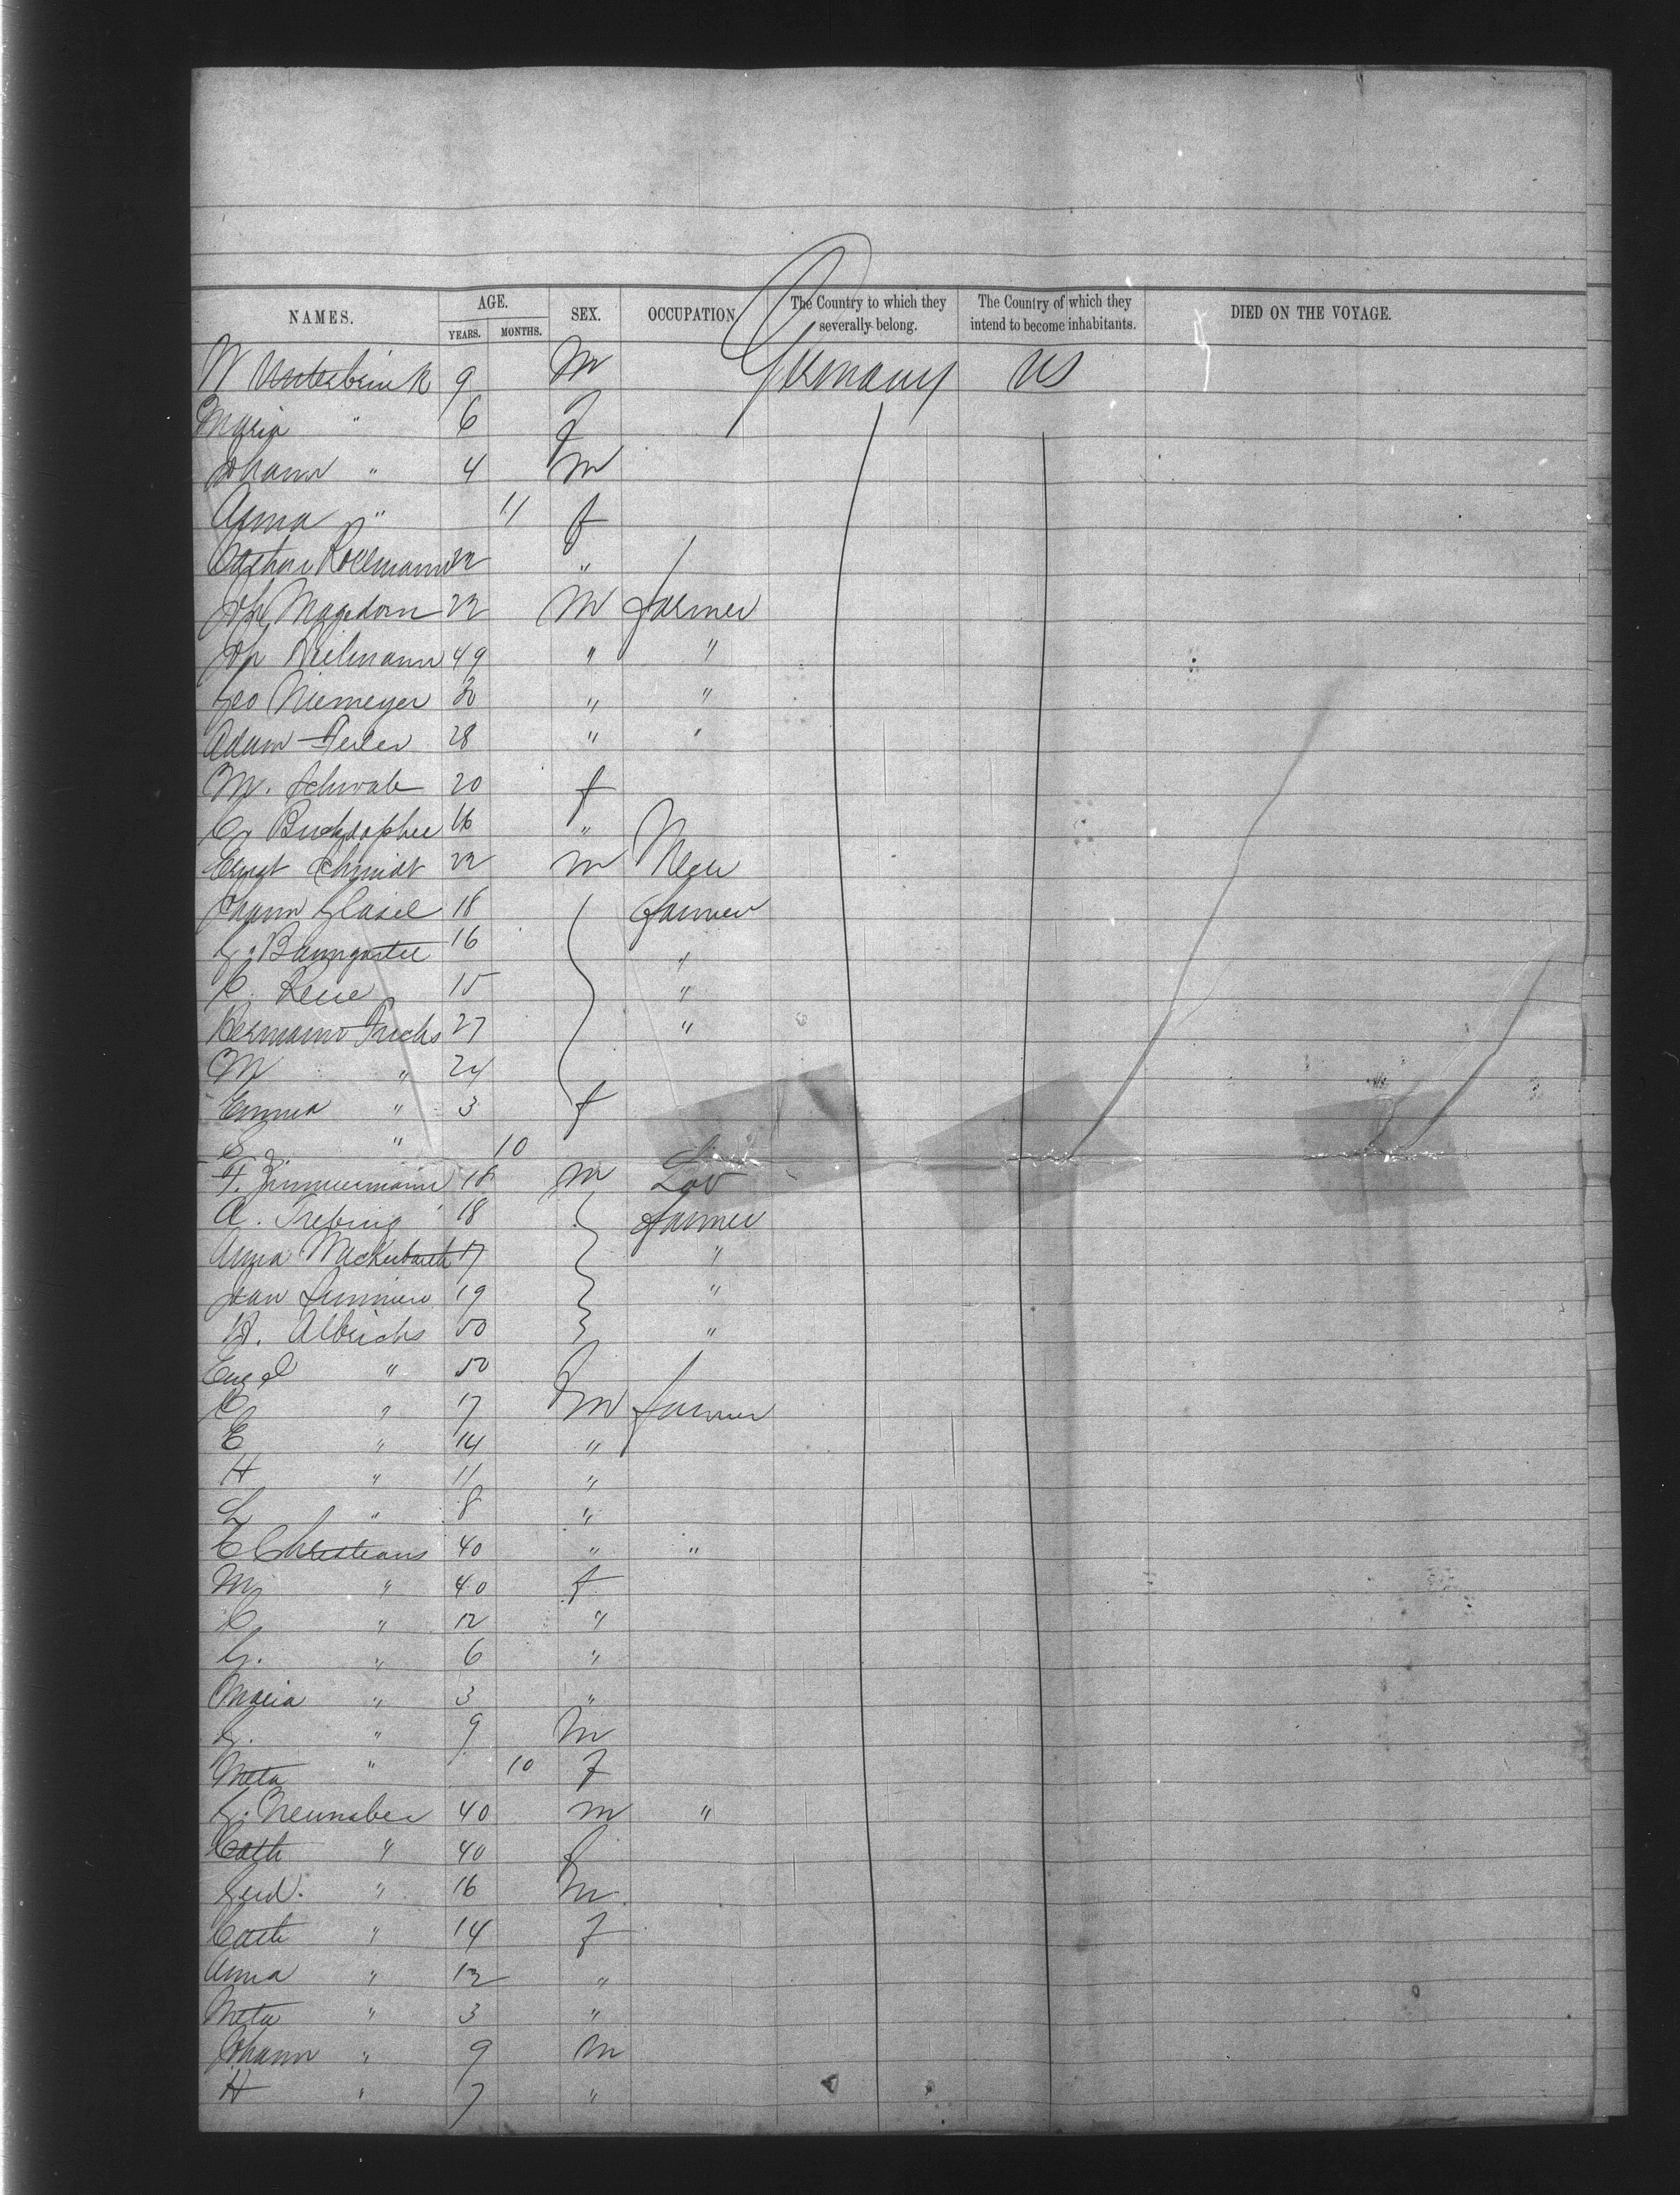 NAMES. AGE. SEX. OCCUPATION The Country to which they severally belong. The Country of which they intend to become inhabitants. DIED ON THE VOYAGE.
YEARS. MONTHS.
W Unterbrink 9 M Germany US
Maria " 6 F
Johann " 4 M
Anna " 11 f
Kollmann 22 "
Joh Magedorn 22 M farmer
Joh 49 " "
Geo Niemeyer 30 " "
Adam 28 " "
M. Schwab 20 f
16 "
Ernst Schmidt 22 m
Johann Glasel 18 farmer
G. Baumgartel 16 "
C. 15 "
Hermann 27 "
M " 24
Emma " 3 f
" 10
F. Zimmermann 18 m Lab
A. Trebing 18 farmer
Anna 17 "
Jean 19 "
H. Albrichs 50 "
Engel " 50
C " 17 M farmer
E " 14 "
H " 11 "
L " 8 "
C Christians 40 " "
M " 40 f
C " 12 "
G. " 6 "
Maria " 3 "
G. " 9 M
Meta " 10 F
G. Neunaber 40 m "
Cath " 40 f
Gerd. " 16 m
Cath " 14 F
Anna " 12 "
Meta " 3 "
Johann " 9 m
H " 7 "